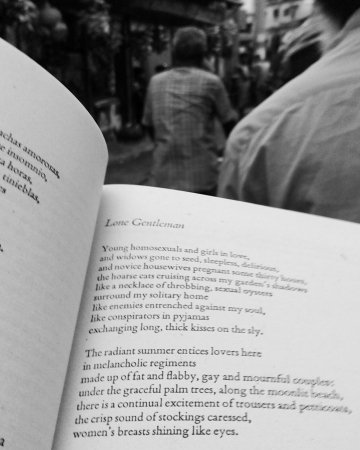 achas amorosas,
e insomnio,
a horas,
tinieblas,
Lone Gentleman
Young homosexuals and girls in love,
and widows gone to seed, sleepless, delirious,
and novice housewives pregnant some thirty hours,
the hoarse cats cruising across my garden's shadows
like a necklace of throbbing, sexual oysters
surround my solitary home
like enemies entrenched against my soul,
like conspirators in pyjamas
exchanging long, thick kisses on the sly.
The radiant summer entices lovers here
in melancholic regiments
made up of fat and flabby, gay and mournful couples:
under the graceful palm trees, along the moonlit beach,
there is a continual excitement of trousers and petticoats,
the crisp sound of stockings caressed,
women's breasts shining like eyes.